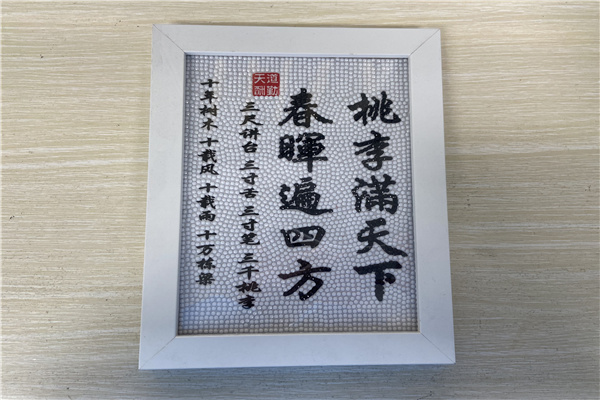 桃李满天下
春暉遍四方
三尺讲台 三寸舌 三寸笔 三千桃李
十年树木 十载风 十载雨 十万栋梁
天道酬勤